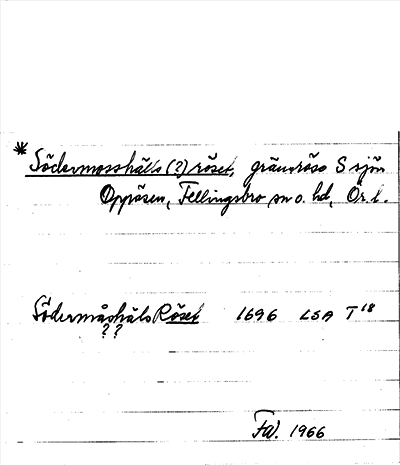 * Södermosshåls (?) röset, gränsröse S sjön
Oppåsen, Fellingsbro sn o. hd, Ör. l.
Södermåshåls Röset 1696 LSA T 18
? ?
Fw. 1966